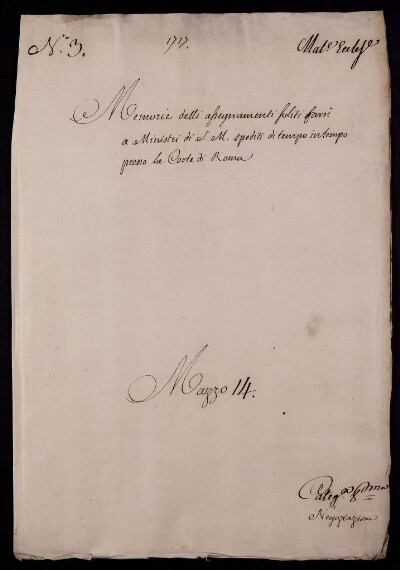 N.º 3.
1717.
Mat.e Eccles.e
Memorie delli assegnamenti soliti farsi
a Ministri di S. M. spediti di tempo in tempo
presso la Corte di Roma
Mazzo 14.
Categ.a
Negoziazioni